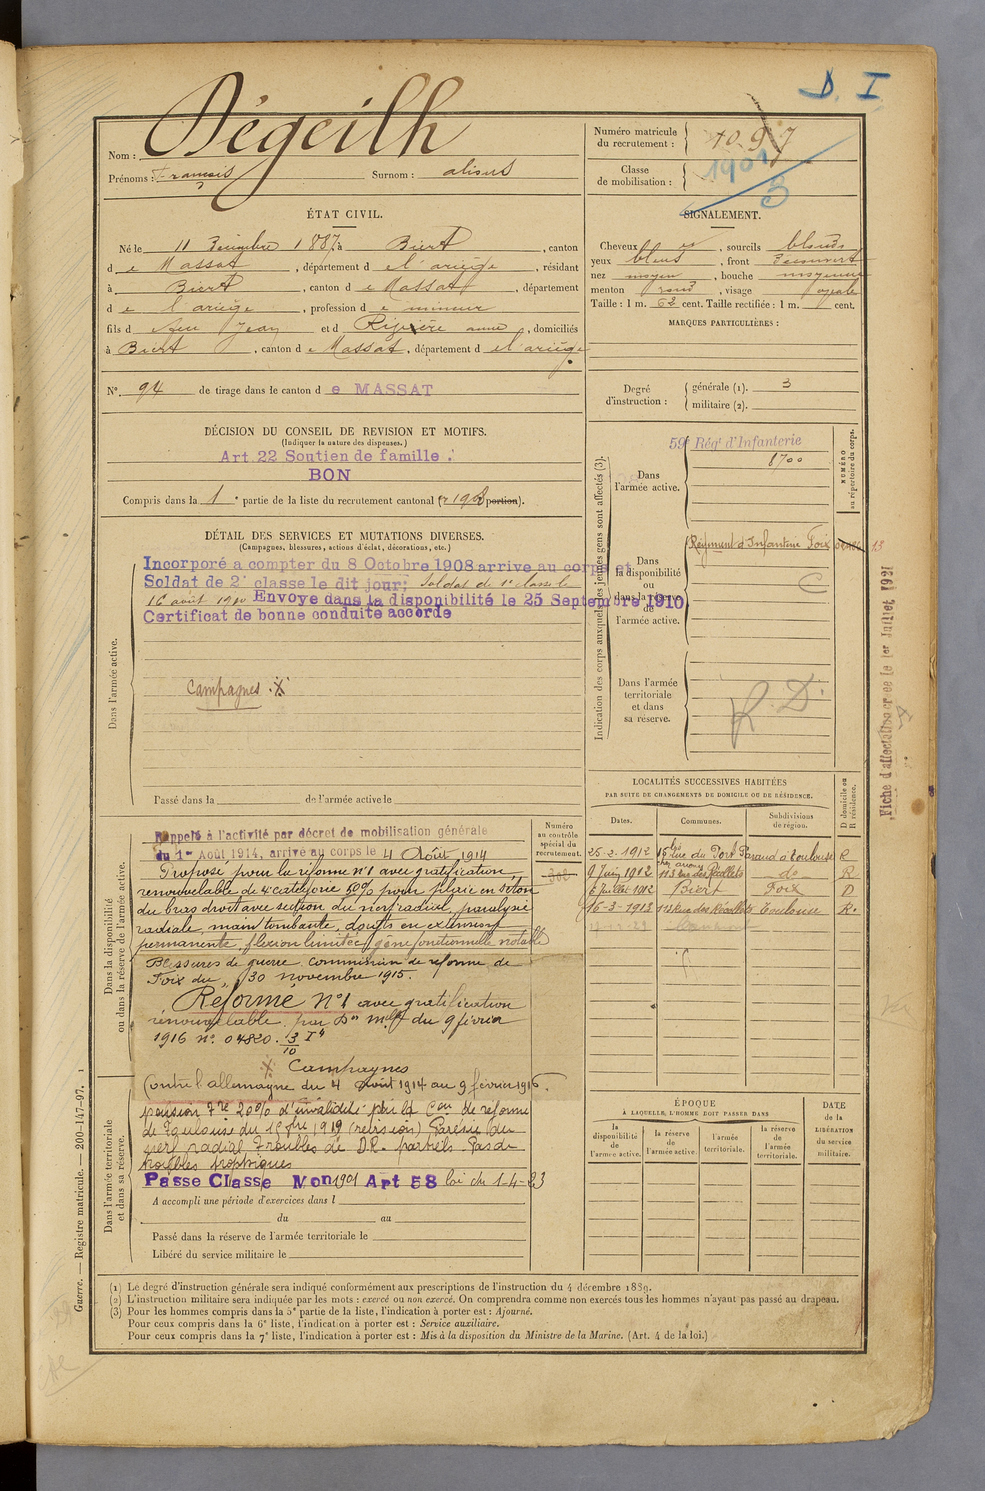 D. I
Nom : Dégeilh
Prénoms : François Surnom : alisus
Numéro matricule du recrutement : 1097
Classe de mobilisation : 1901
3
ÉTAT CIVIL.
Né le 11 Décembre 1887, à Biert, canton
de Massat, département de l'ariège, résidant
à Biert, canton de Massat, département
de l'ariège, profession de mineur
fils de feu Jean et de Rivière anne, domiciliés
à Biert, canton de Massat, département de l'ariège
N° 94 de tirage dans le canton de MASSAT
DÉCISION DU CONSEIL DE REVISION ET MOTIFS.
(Indiquer la nature des dispenses.)
Art 22 Soutien de famille.
BON
Compris dans la 1e partie de la liste du recrutement cantonal ( 1908 portion).
DÉTAIL DES SERVICES ET MUTATIONS DIVERSES.
(Campagnes, blessures, actions d'éclat, décorations, etc.)
Dans l'armée active.
Incorporé a compter du 8 Octobre 1908 arrive au corps et
Soldat de 2e classe le dit jour; Soldat de 1e classe le
16 août 1910 Envoye dans la disponibilité le 25 Septembre 1910
Certificat de bonne conduite accorde
Campagnes . X
Passé dans la de l'armée active le
Dans la disponibilité ou dans la réserve de l'armée active.
Rappelé à l'activité par décret de mobilisation générale
du 1er Août 1914, arrivé au corps le 4 Août 1914
Proposé pour la réforme n°1 avec gratification
renouvelable de 4e catégorie 50% pour plaie en séton
du bras droit avec section du nerf radial, paralysie
radiale, main tombante, doigts en extension
permanente, flexion limitée, gêne fonctionnelle notable
Blessures de guerre. Commission de reforme de
Foix du 30 novembre 1915.
Réformé N°1 avec gratification
renouvelable par Don melle du 9 février
1916 n° 04820. 13/10 I"
X Campagnes
Contre l'allemagne du 4 août 1914 au 9 février 1916.
Dans l'armée territoriale et dans sa réserve.
pension 7re 20% d'invalidité par la Con de réforme
de Toulouse du 1919 (révision) Parésie du
nerf radial Troubles de D.R. partiels. Pas de
troubles trophiques
Passe Classe Mon 1901 Art 58 loi du 1-4-23
A accompli une période d'exercices dans l
du au
Passé dans la réserve de l'armée territoriale le
Libéré du service militaire le
Numéro au contrôle spécial du recrutement.
302
SIGNALEMENT.
Cheveux , sourcils blonds
yeux bleus, front découvert
nez moyen, bouche moyenne
menton rond, visage ovale
Taille : 1 m. 62 cent. Taille rectifiée : 1 m. cent.
MARQUES PARTICULIÈRES :
Degré d'instruction : générale (1). 3
militaire (2).
Indication des corps auxquels les jeunes gens sont affectés (3).
NUMÉRO au répertoire du corps.
Dans l'armée active.
59e Régt d'Infanterie
8700
Dans la disponibilité ou dans la réserve de l'armée active.
Régiment d'Infanterie Foix
13
C
Dans l'armée territoriale et dans sa réserve.
R. D.
Fiche d'affectation créée le 1er Juillet 1921
LOCALITÉS SUCCESSIVES HABITÉES
PAR SUITE DE CHANGEMENTS DE DOMICILE OU DE RÉSIDENCE.
Dates. Communes. Subdivisions de région. D domicile ou R résidence.
25-2-1912 15 bis rue du Port Garaud à Toulouse R
9 Juin 1912 113 Rue des Récollets de R
6 Juillet 1912 Biert Foix D
16-3-1913 113 Rue des Récollets Toulouse R.
ÉPOQUE
À LAQUELLE L'HOMME DOIT PASSER DANS
la disponibilité de l'armée active. la réserve de l'armée active. l'armée territoriale. la réserve de l'armée territoriale.
DATE de la LIBÉRATION du service militaire.
(1) Le degré d'instruction générale sera indiqué conformément aux prescriptions de l'instruction du 4 décembre 1889.
(2) L'instruction militaire sera indiquée par les mots : exercé ou non exercé. On comprendra comme non exercés tous les hommes n'ayant pas passé au drapeau.
(3) Pour les hommes compris dans la 5e partie de la liste, l'indication à porter est : Ajourné.
Pour ceux compris dans la 6e liste, l'indication à porter est : Service auxiliaire.
Pour ceux compris dans la 7e liste, l'indication à porter est : Mis à la disposition du Ministre de la Marine. (Art. 4 de la loi.)
Guerre. — Registre matricule. — 200-147-97. 1